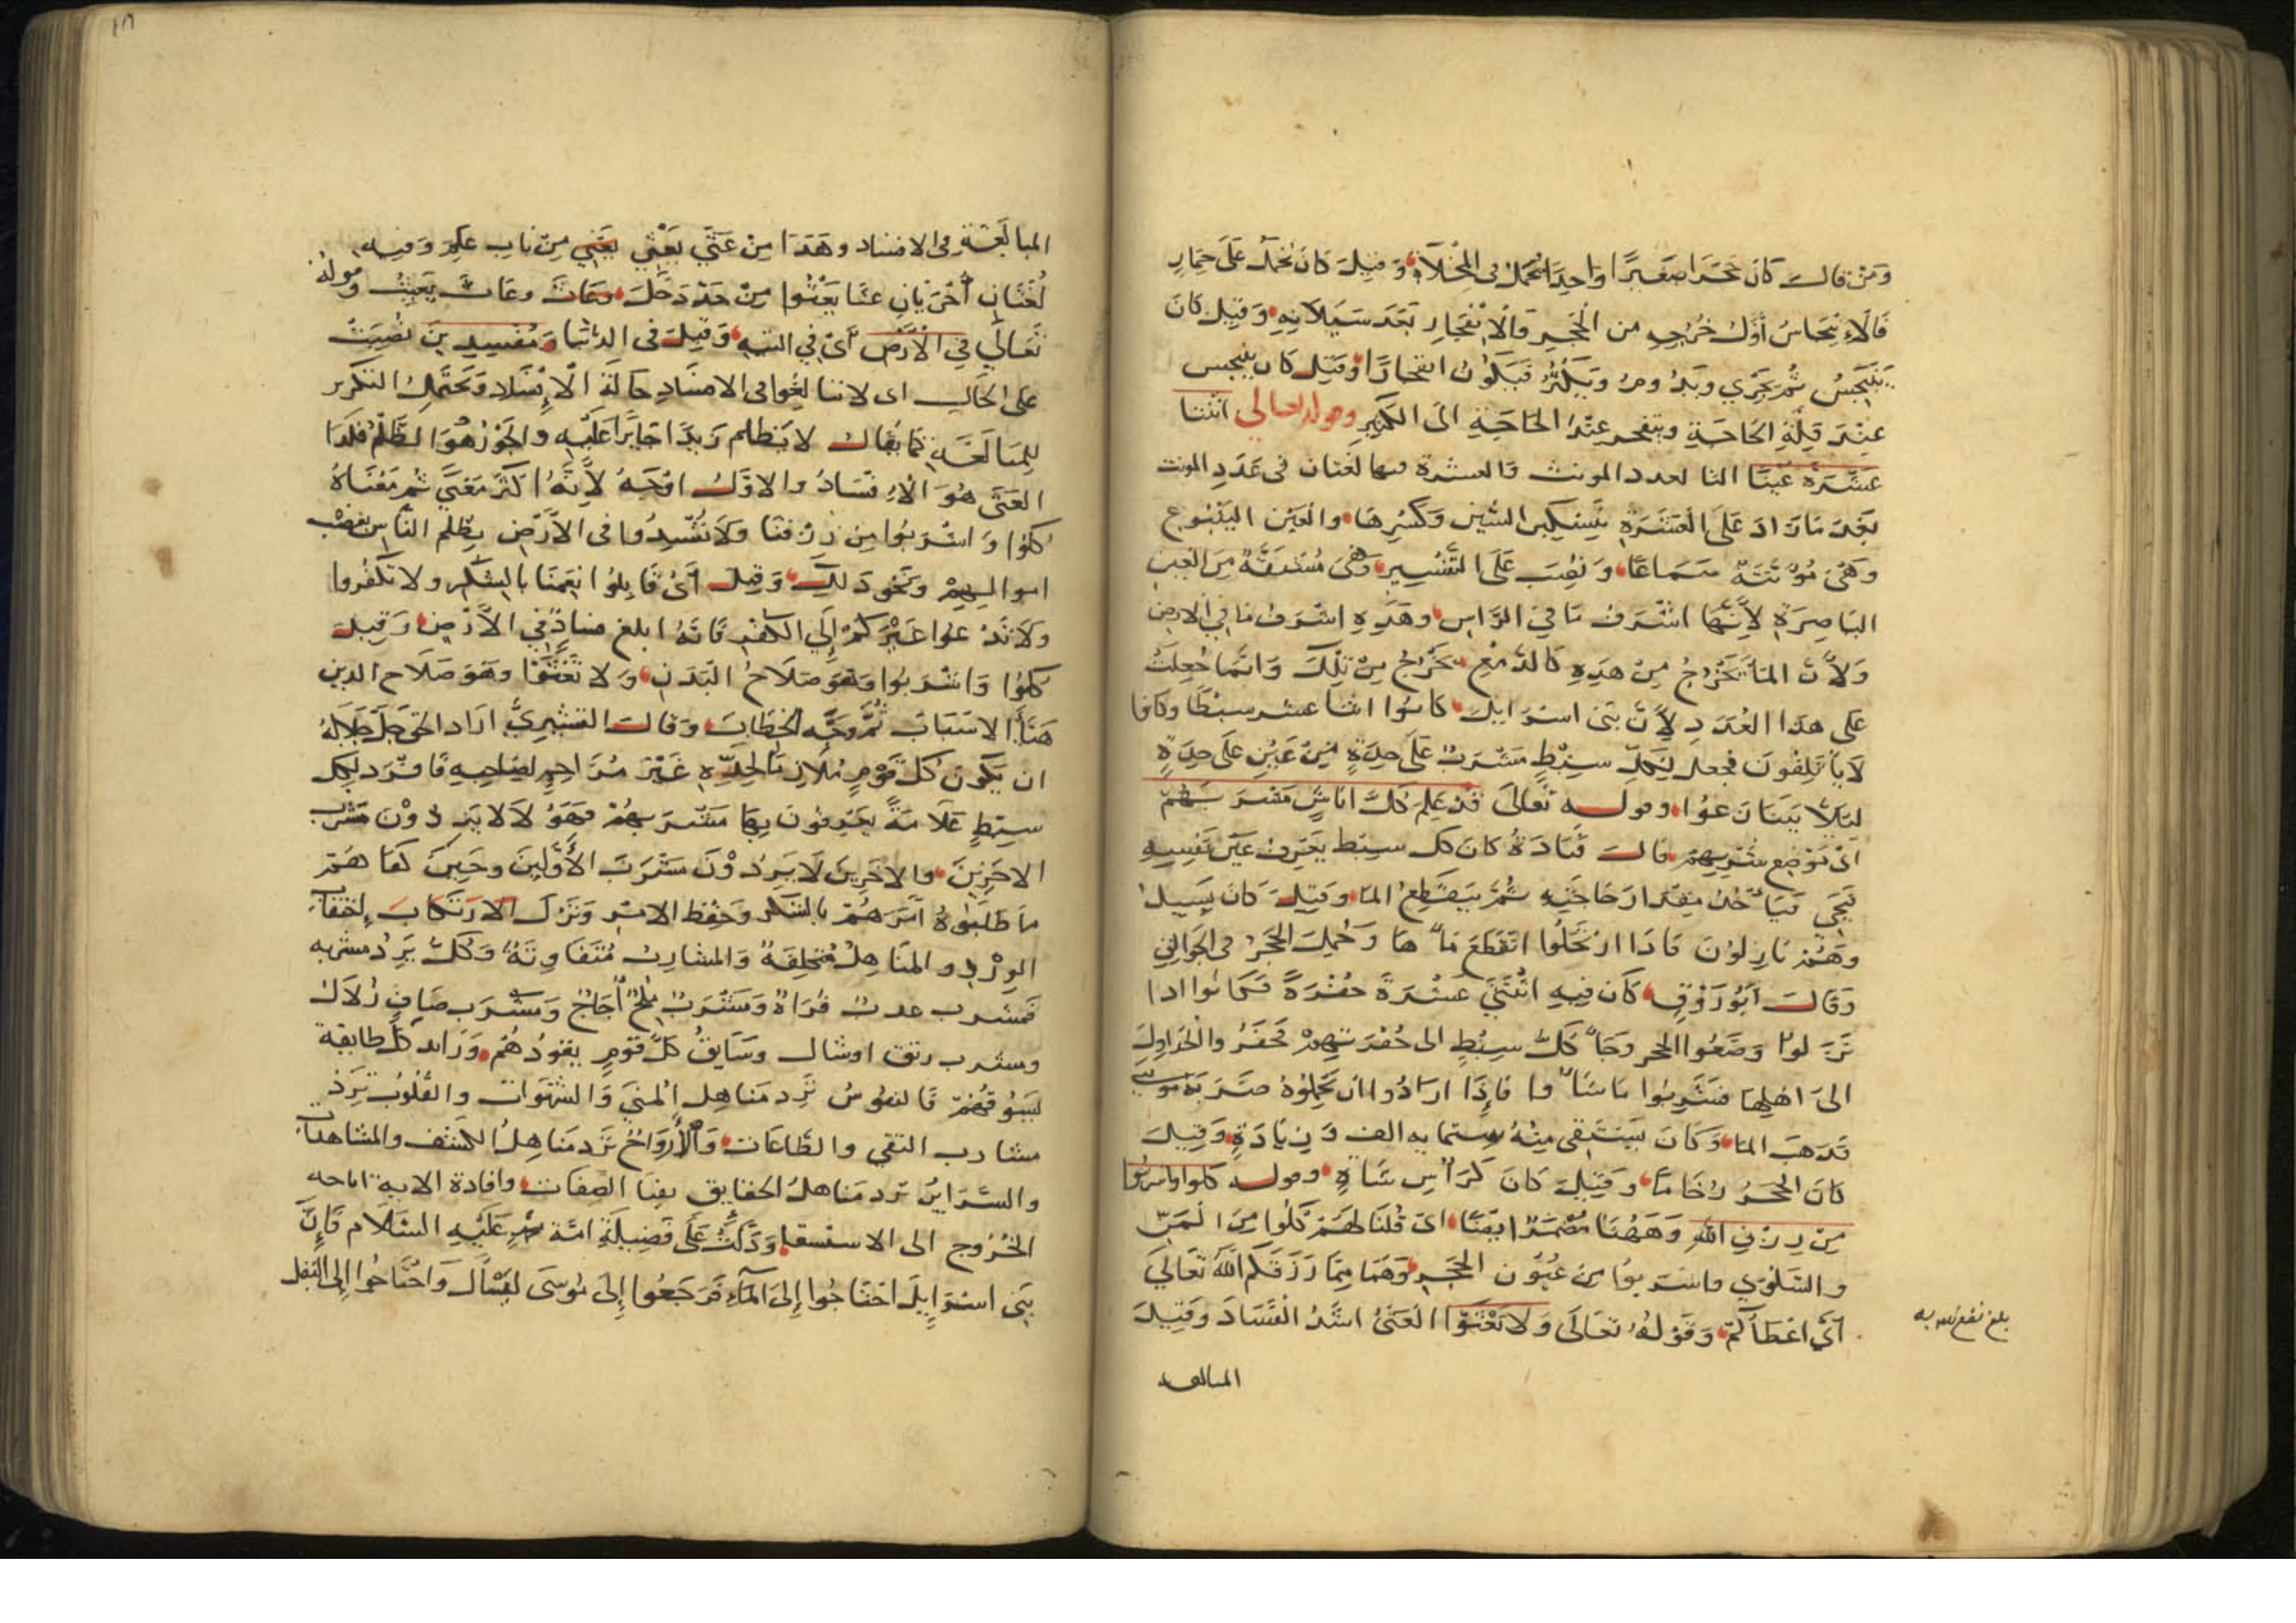 ومن قال كان حجرا صغيرًا واحدًا يحمل في المخلاة وقيل كان يحمل على حمار
فالانبجاس أول خروجه من الحجر والانفجار بعد سيلانه وقيل كان
ينبجس ثم يجري ويدوم ويكثر فيكون انفجارًا وقيل كان ينبجس
عند قلة الحاجة وينفجر عند الحاجة الى الكثير وقوله تعالى اثنتا
عشرة عينًا التا لعدد المونث والعشرة فيها لغتان في عدد المونث
بعد ما زاد على العشرة بتسكين الشين وكسرها والعين الينبوع
وهي مؤنثة سماعًا ونصب على التفسير وهي مشتقة من العين
الباصرة لأنها اشرف ما في الراس وهذه اشرف ما في الارض
ولأن الما يخرج من هذه كالدمع يخرج من تلك وانما جعلت
على هذا العدد لأن بني اسرايل كانوا اثنا عشر سبطًا وكانوا
لا يأتلفون فجعل لكل سبط مشرب على حدة من عين على حدة
ليلا يتنازعوا وقوله تعالى قد علم كل اناس مشربهم
اي موضع شربهم قال قتادة كان كل سبط يعرف عين نفسه
فيجي فيأخذ مقدار حاجته ثم ينقطع الما وقيل كان يسيل
وهم نازلون فاذا ارتحلوا انقطع ماؤها وحمل الحجر في الجوالق
وقال أبو روق كان فيه اثنتي عشرة حفرة فكانوا اذا
نزلوا وضعوا الحجر وجاء كل سبط الى حفرتهم فحفر والجداول
الى اهلها فشربوا ما شاؤا فإذا ارادوا ان يحملوه ضربه موسى
فذهب الما وكان يستقي منه ستماية الف وزيادة وقيل
كان الحجر رخامًا وقيل كان كراس شاة وقوله كلوا واشربوا
من رزق الله وههنا مضمر ايضًا اي قلنا لهم كلوا من المن
والسلوى واشربوا من عيون الحجر وهما مما رزقكم الله تعالى
أي اعطاكم وقوله تعالى ولا تعثوا العثي اشد الفساد وقيل
المبالغة
بلغ
المبالغة في الافساد وهذا من عثي يعثي من باب علم وفيه
لغتان أخريان عثا يعثوا من حد دخل وعاث يعيث وقوله
تعالى في الأرض أي في التيه وقيل في الدنيا ومفسدين نصبت
على الحال اي لا تبالغوا في الافساد حالة الافساد ويحتمل التكرير
للمبالغة كما يقال لا يظلم زيدًا جايرًا عليه والجور هو الظلم فكذا
العثى هو الافساد والاول اوجه لأنه اكثر معنى ثم معناه
كلوا واشربوا من رزقنا ولا تفسدوا في الأرض بظلم الناس بغصب
اموالهم ونحو ذلك وقيل أي قابلوا انعمنا بالشكر ولا تكفروا
ولا تدعوا غيركم إلى الكفر فانه ابلغ فساد في الأرض وقيل
كلوا واشربوا وهو صلاح البدن ولا تعثوا وهو صلاح الدين
هيأ الاسباب ثم وجه الخطاب وقال القشيري اراد الحق جل جلاله
ان يكون كل قوم ملازما لحده غير مزاحم لصاحبه فافرد لكل
سبط علامة يعرفون بها مشربهم فهؤلا لا يردون مشرب
الاخرين والاخرين لا يردون مشرب الأولين وحين كفاهم
ما طلبوه أمرهم بالشكر وحفظ الامر وترك الارتكاب لخفاء
الوزر والمناهل مختلفة والمشارب متفاوتة وكل يرد مشربه
فمشرب عذب فرات ومشرب ملح أجاج ومشرب صاف زلال
ومشرب رنق اوشال وسايق كل قوم يقودهم ورايد كل طايفة
يسوقهم فالنفوس ترد مناهل المنى والشهوات والقلوب ترد
مشارب التقى والطاعات والأرواح ترد مناهل الكشف والمشاهدات
والسراير ترد مناهل الحقايق بفنا الصفات وافادة الاية اباحه
الخروج الى الاستسقا ودلت على فضيلة امة عليه السلام فإن
بني اسرايل احتاجوا إلى الماء فرجعوا إلى موسى ليسأل واحتاجوا إلى البقل